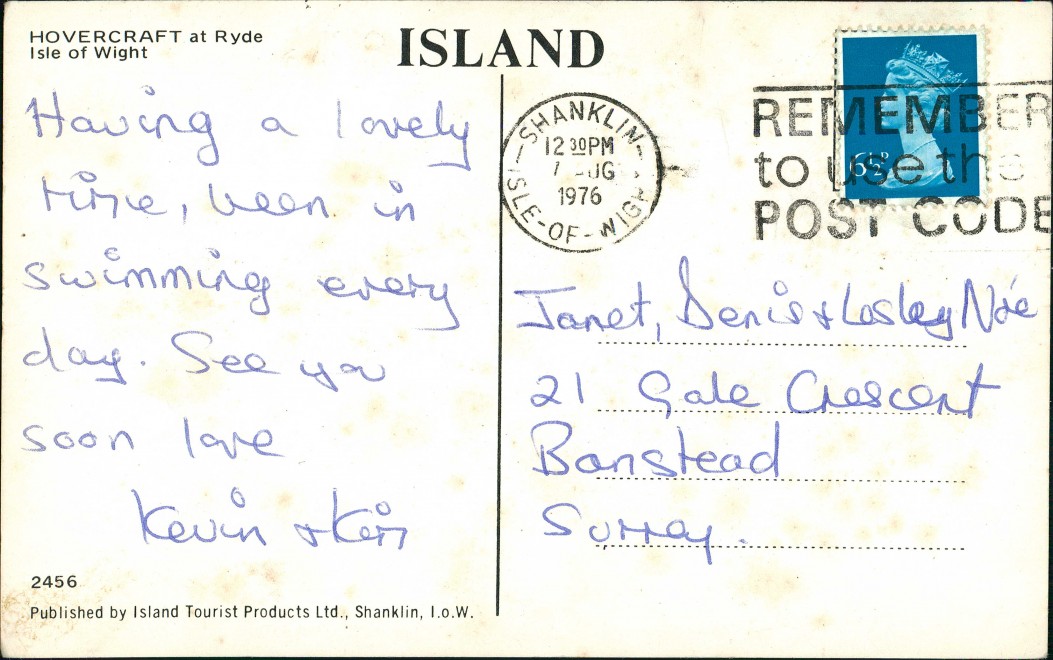 HOVERCRAFT at Ryde
Isle of Wight
ISLAND
Having a lovely
time, been in
swimming every
day. See you
soon love
Kevin + Kim
2456
Published by Island Tourist Products Ltd., Shanklin, I.o.W.
SHANKLIN
12 30PM
1976
ISLE-OF-WIGHT
REMEMBER
to use the
POST CODE
6½P
Janet, Denis + Lesley Noé
21 Gale Crescent
Banstead
Surrey.